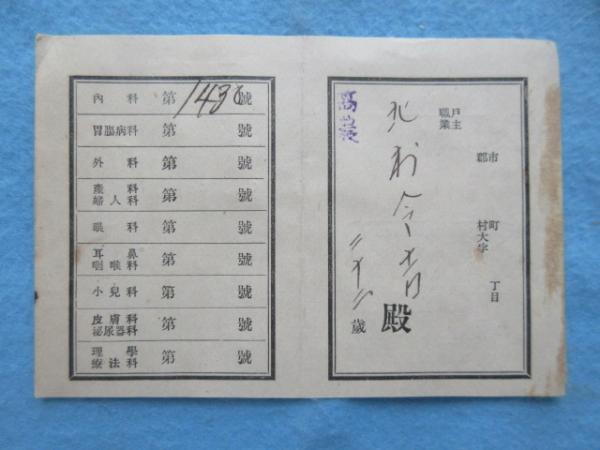 戸主
職業
市
郡
町
村大字
丁目
殿
歳
内科 第1430號
胃腸病科 第 號
外科 第 號
産科
婦人科 第 號
眼科 第 號
耳鼻
咽喉科 第 號
小兒科 第 號
皮膚科
泌尿器科 第 號
理學
療法科 第 號